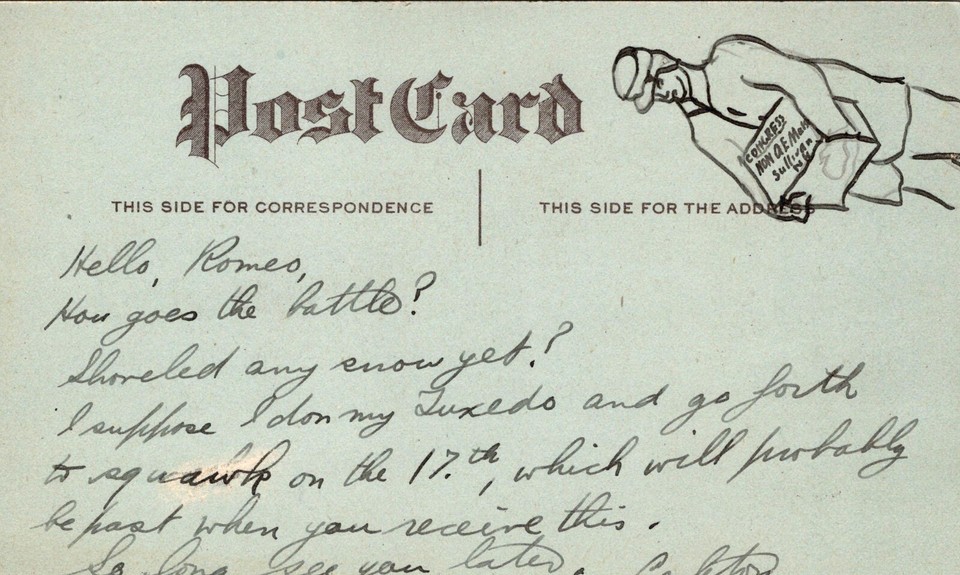 Post Card
THIS SIDE FOR CORRESPONDENCE
THIS SIDE FOR THE ADDRESS
CONGRESS
HON
Sullivan
Hello, Romeo,
How goes the battle?
Shoveled any snow yet?
I suppose I don my Tuxedo and go forth
to squawk on the 17.th, which will probably
be past when you receive this.
So long see you later.